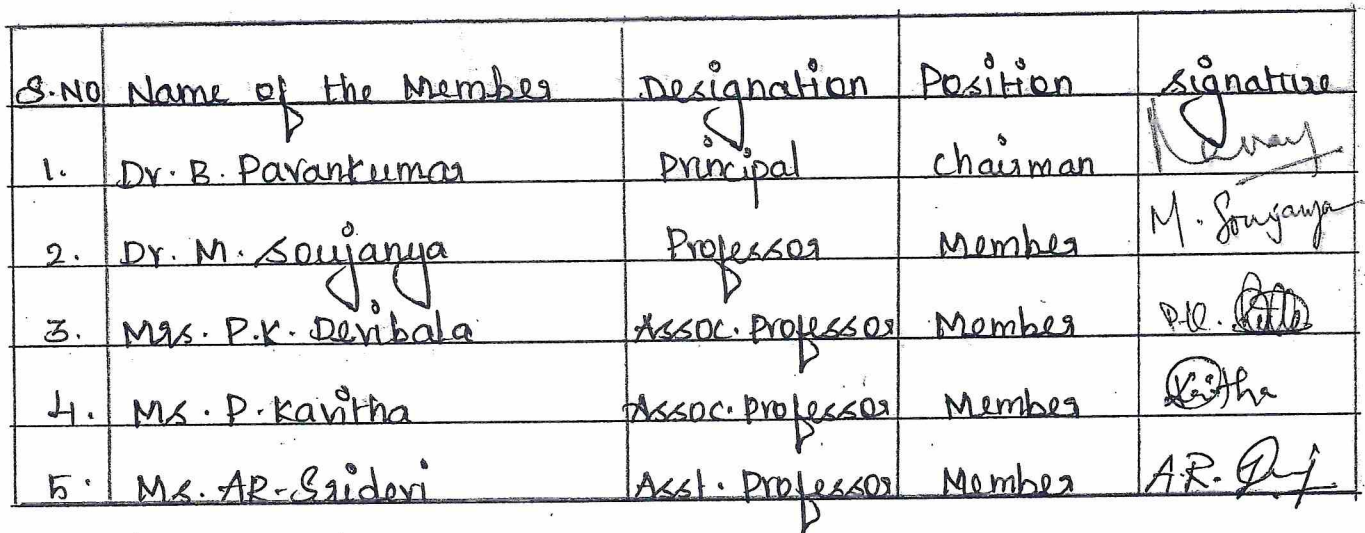 S.No Name of the Member Designation Position Signature
1. Dr. B. Pavankumar Principal Chairman
2. Dr. M. Soujanya Professor Member M. Soujanya
3. Mrs. P.K. Devibala Assoc. Professor Member P.K.
4. Ms. P. Kavitha Assoc. Professor Member Kavitha
5. Ms. AR. Sridevi Asst. Professor Member A.R.